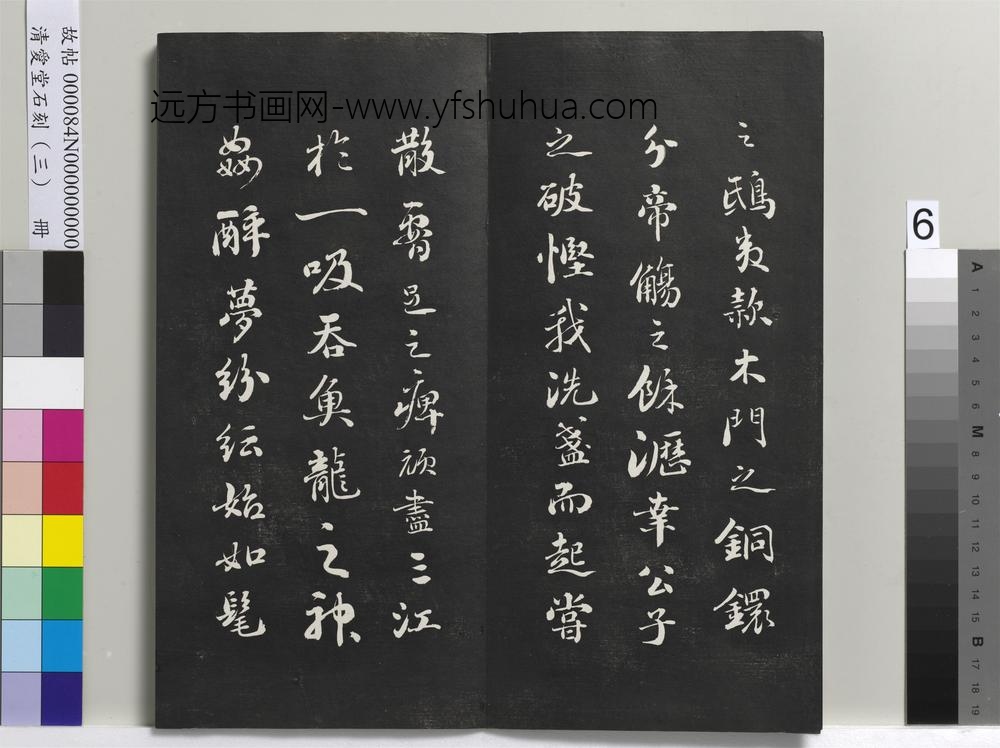 之鴟夷款木門之銅鐶
分帝觴之餘瀝幸公子
之破慳我洗盞而起嘗
散腰足之痺頑盡三江
於一吸吞魚龍之神
姦醉夢紛紜始如髦
远方书画网-www.yfshuhua.com
故帖 000084N000000000
清愛堂石刻(三) 冊
6
A
1
2
3
4
5
6
M
8
9
10
11
12
13
14
15
B
17
18
19